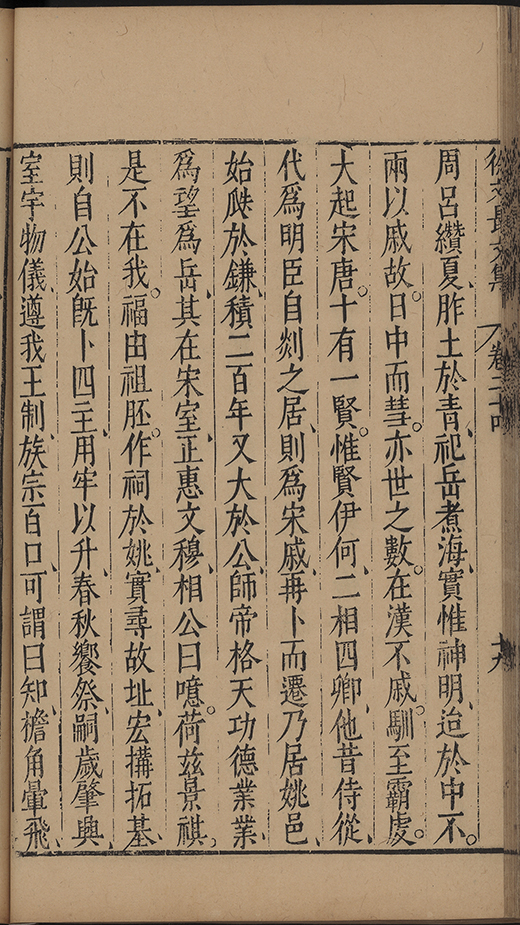 徐文長文集 卷二十四 十八
周呂纘夏、胙土於青、祀岳煮海、實惟神明、迨於中不。
兩以戚故。日中而彗。亦世之數。在漢不戚。馴至霸虔。
大起宋唐。十有一賢。惟賢伊何、二相四卿、他昔侍從、
代爲明臣自剡之居、則爲宋戚、再卜而遷乃居姚邑、
始昳於鎌、積二百年又大於公、師帝格天功德業業、
爲望爲岳、其在宋室、正惠文穆、相公曰噫。荷兹景祺。
是不在我。福由祖胚。作祠於姚、實尋故址、宏搆拓基、
則自公始旣卜四主、用牢以升、春秋饗祭、嗣歲肇興、
室宇物儀、遵我王制、族宗百口、可謂曰知、檐角暈飛、